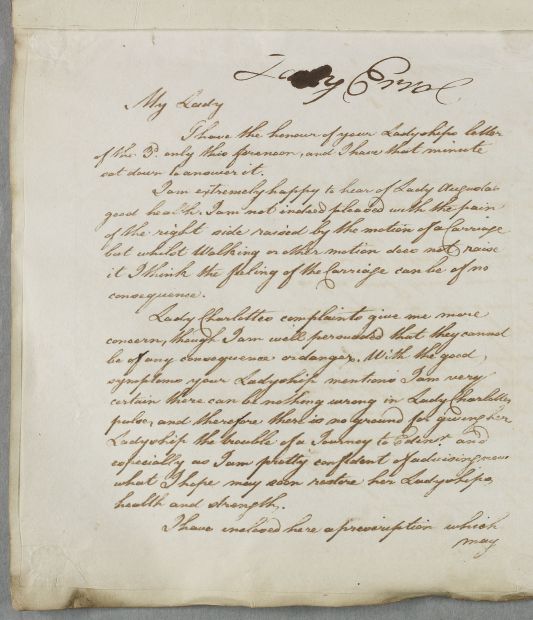 Lady Errol
My Lady
I have the honour of your Ladyships letter
of the 3d. only this forenoon, and I have that minute
sat down to answer it.
I am extremely happy to hear of Lady Augusta's
good health. I am not indeed pleased with the pain
of the right side raised by the motion of a Carriage
but whilst Walking or other motion does not raise
it I think the feeling of the Carriage can be of no
consequence.
Lady Charlottes complaints give me more
concern, though I am well persuaded that they cannot
be of any consequence or danger. With the good
symptoms your Ladyship mentions I am very
certain there can be nothing wrong in Lady Charlottes
pulse, and therefore there is no ground for giving her
Ladyship the trouble of a Journey to Edinr. and
especially as I am pretty confident of advising now
what I hope may soon restore her Ladyships
health and strength.
I have inclosed here a prescription which
may